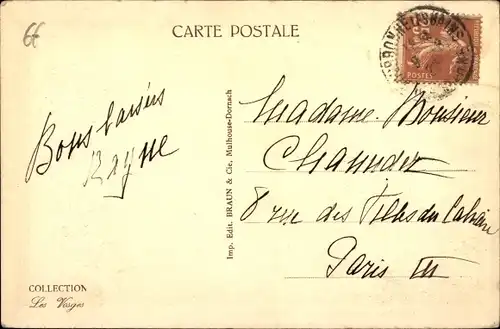 66
CARTE POSTALE
POSTES
Bons baisers
Madame, Monsieur
8 rue des Filles du Calvaire
Paris III
Imp. Edit. BRAUN & Cie, Mulhouse-Dornach
COLLECTION
Les Vosges